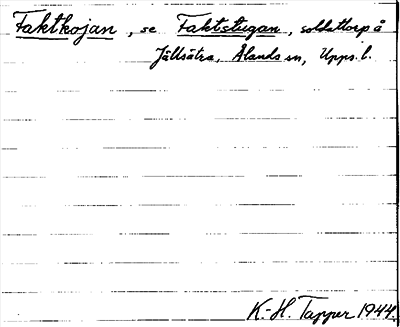 Faktkojan, se Faktstugan, soldattorp å
Jällsätra, Ålands sn, Upps. l.
K.-H. Tapper 1944.